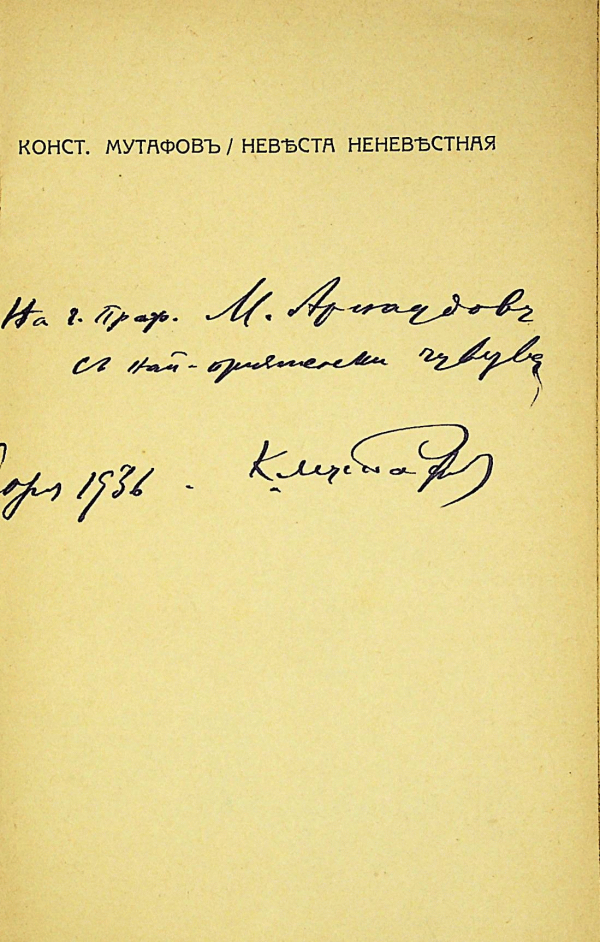 КОНСТ. МУТАФОВЪ / НЕВѢСТА НЕНЕВѢСТНАЯ
На г. проф. М. Арнаудовъ
съ най-приятелски чувува
1936 -
К. Мутафов